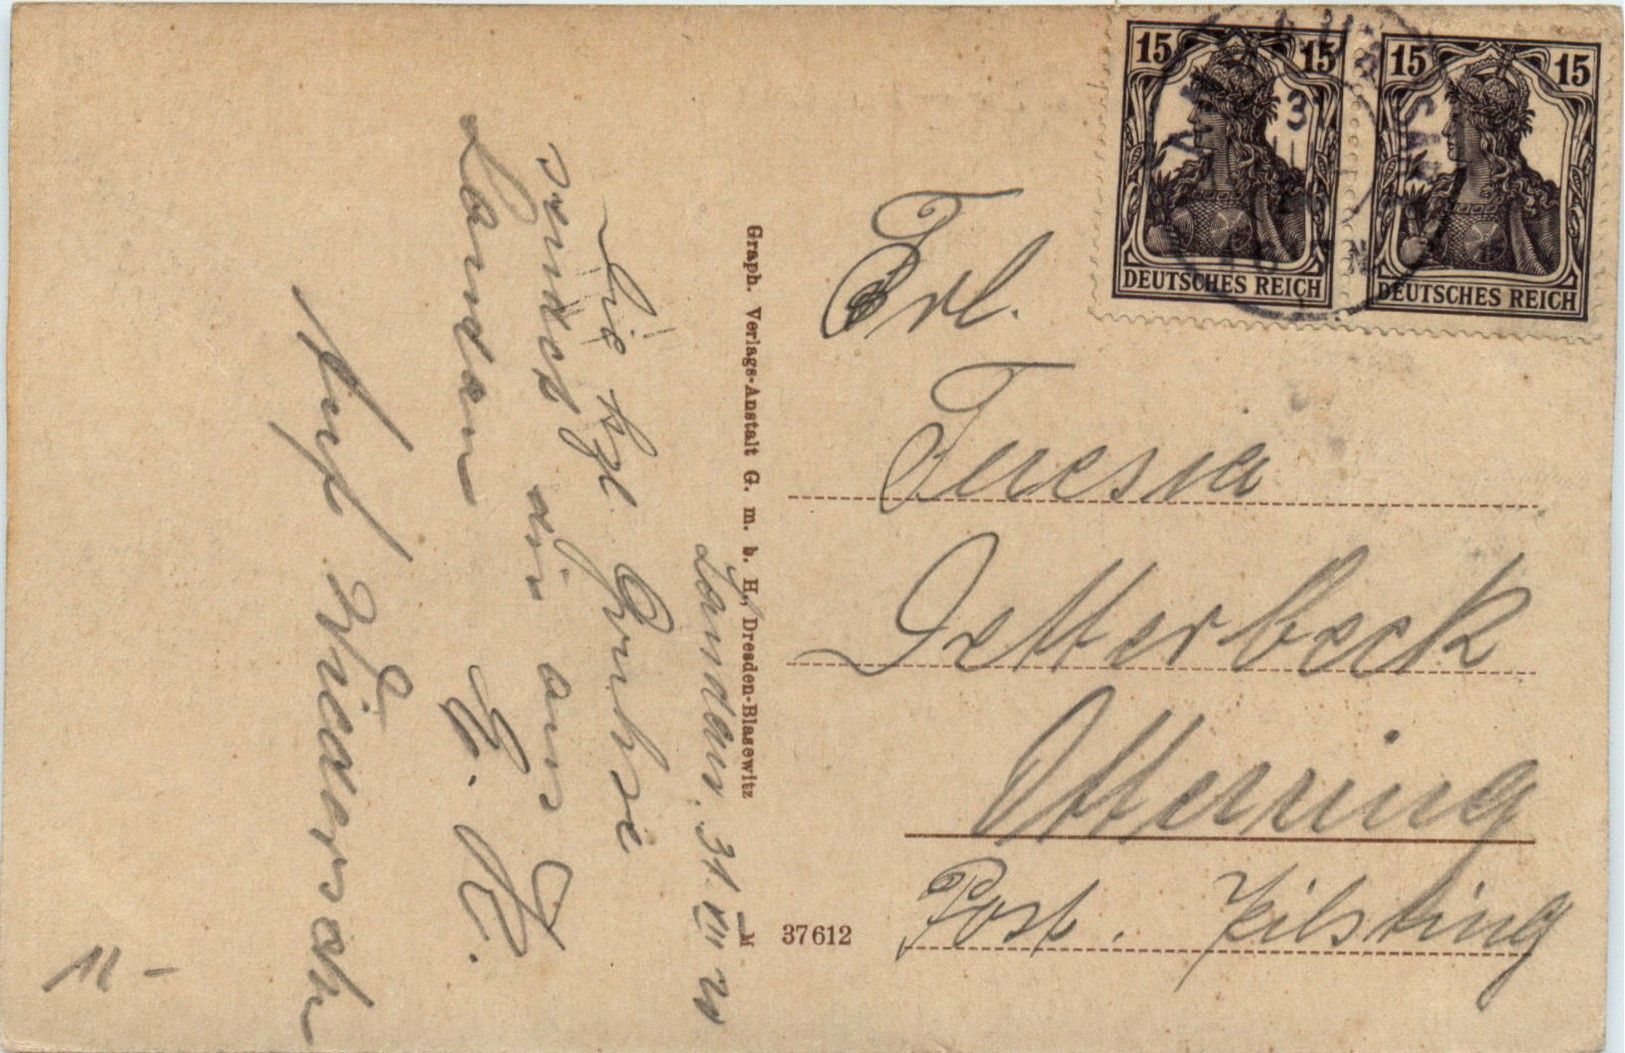 15 15
DEUTSCHES REICH
15 15
DEUTSCHES REICH
Frl.
Theresia
Ottering
Post. Pilsting
Graph. Verlags-Anstalt G. m. b. H., Dresden-Blasewitz
M 37612
Landau, 31. VII 20
Die hzl. Grüße
sendet dir aus
Landau
Auf Wiedersehn
11 -